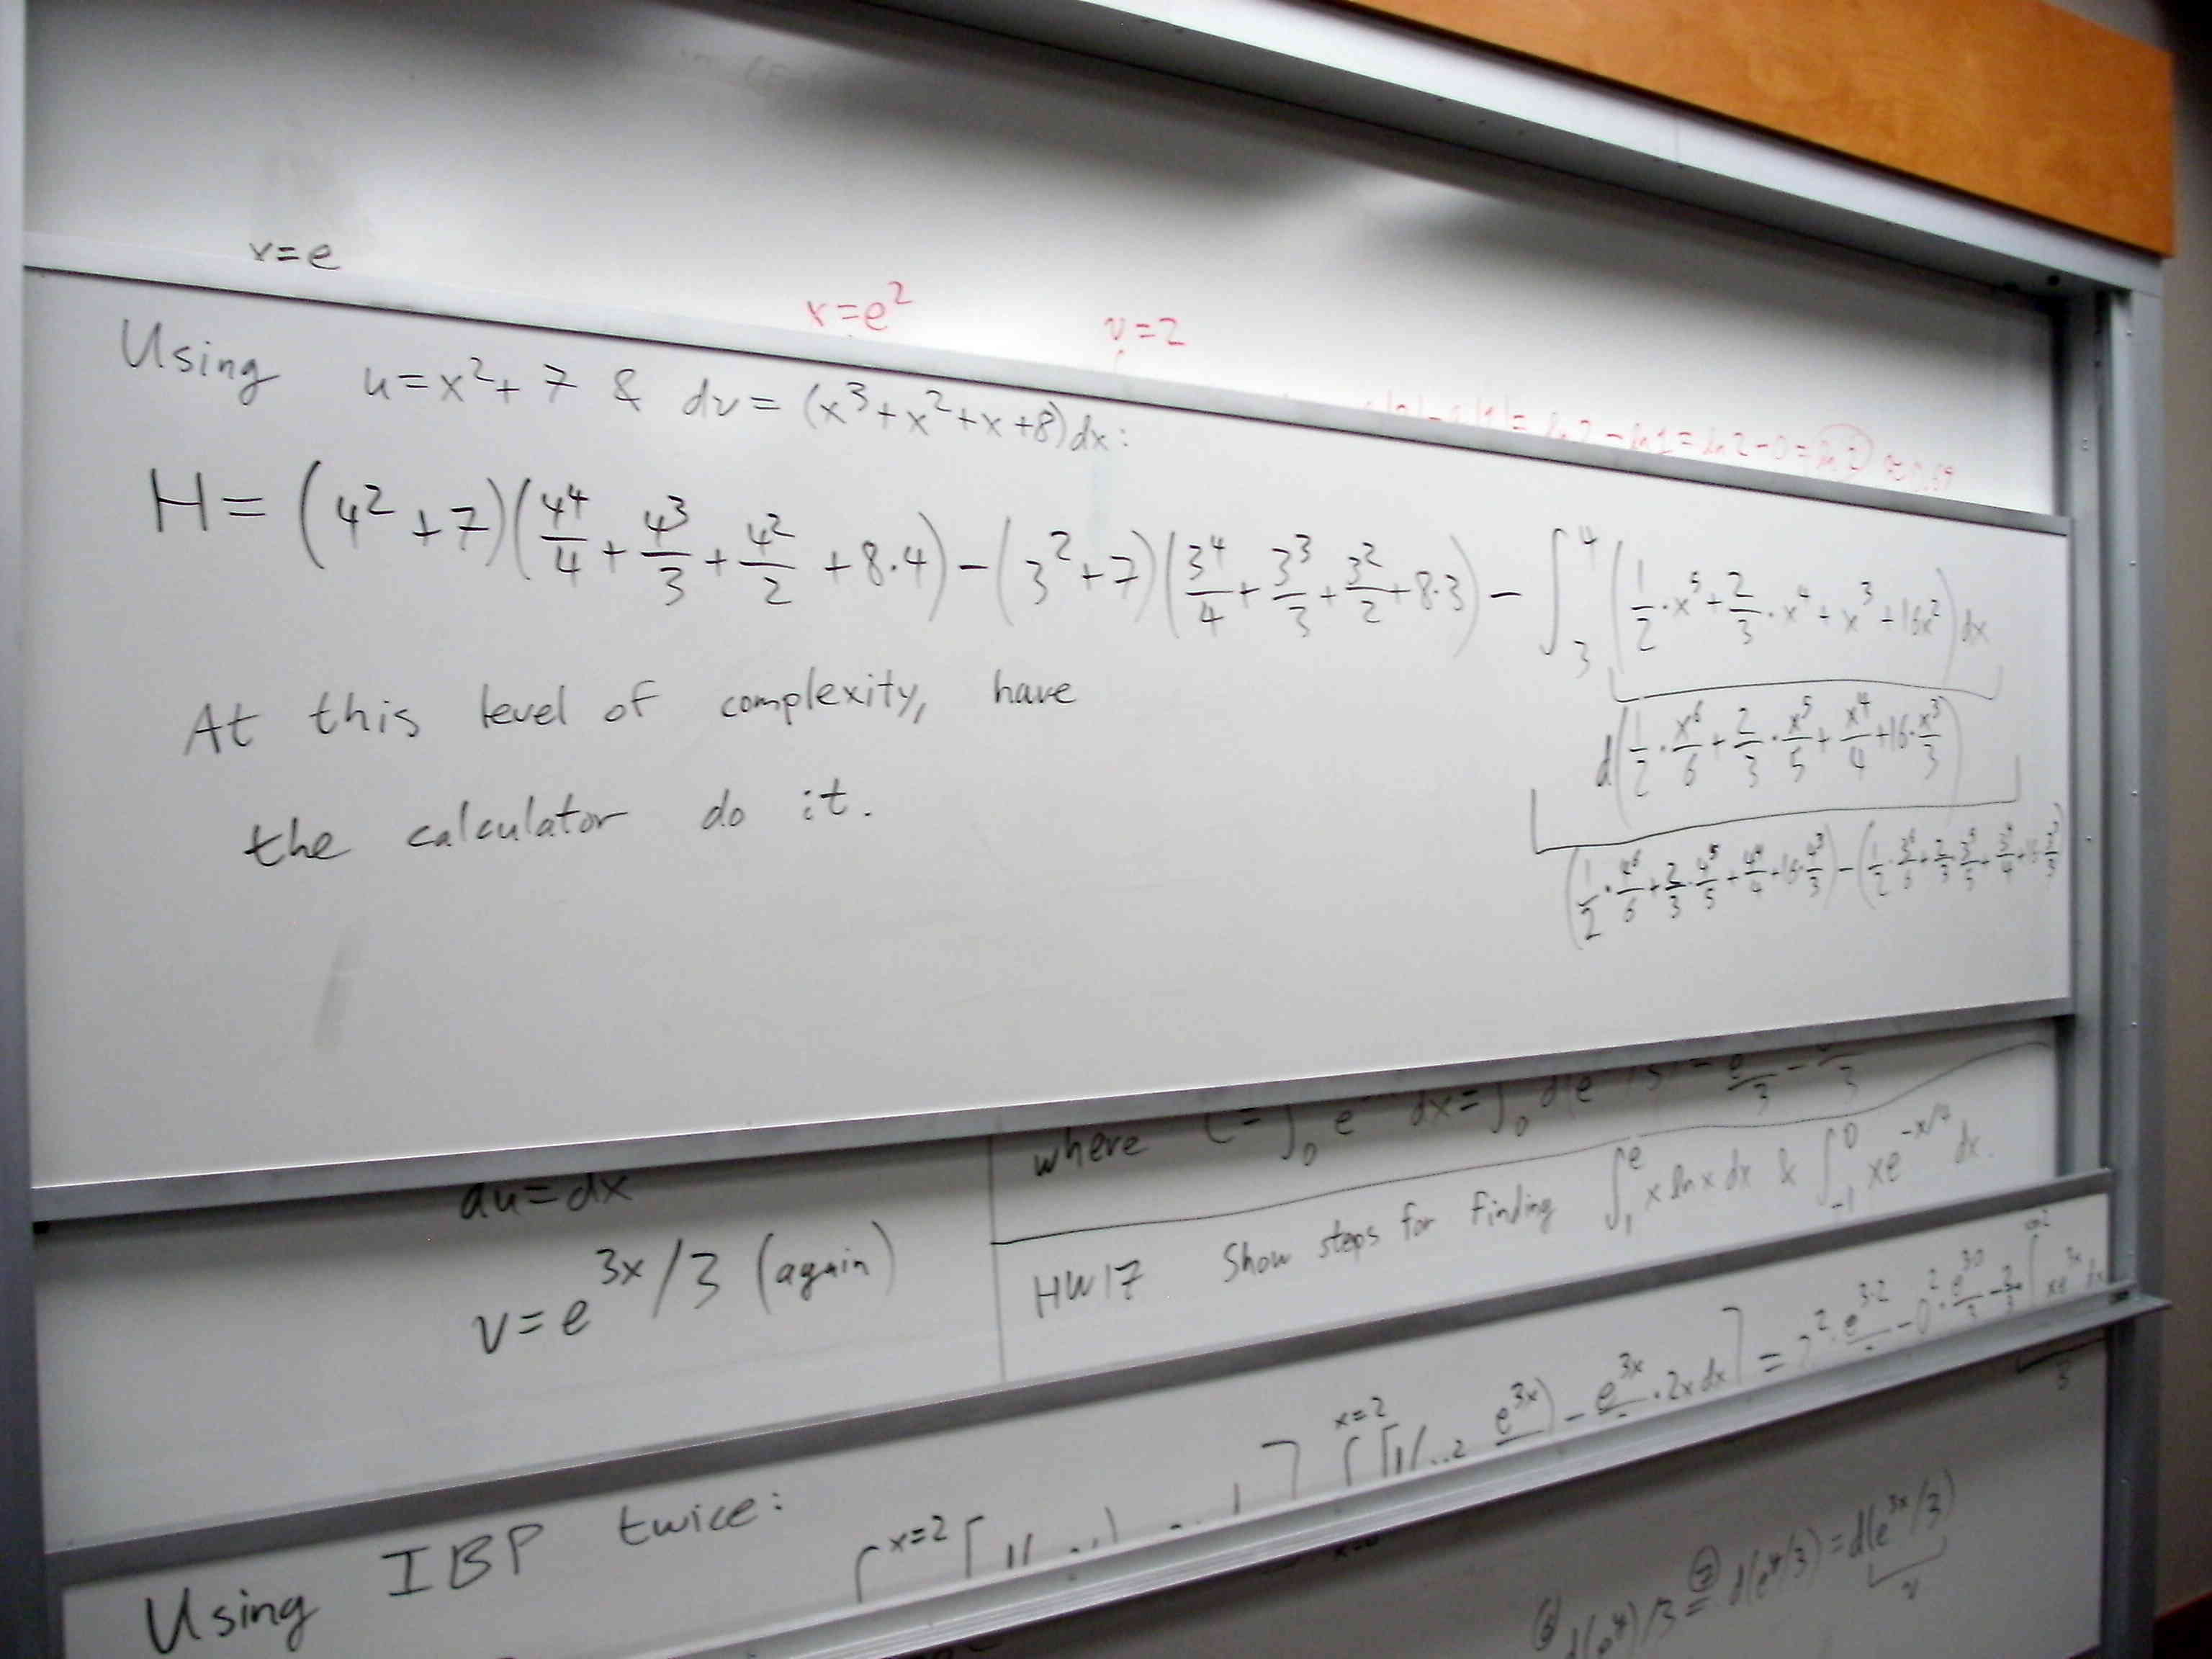 x=e
x=e²
v=2
ln2-ln1=ln2-0=ln2
Using u=x²+7 & dv=(x³+x²+x+8)dx:
H=(4²+7)(4⁴/4+4³/3+4²/2+8·4)-(3²+7)(3⁴/4+3³/3+3²/2+8·3)-∫₃⁴(1/2·x⁵+2/3·x⁴+x³+16x²)dx
d(1/2·x⁶/6+2/3·x⁵/5+x⁴/4+16·x³/3)
(1/2·4⁶/6+2/3·4⁵/5+4⁴/4+16·4³/3)-(1/2·3⁶/6+2/3·3⁵/5+3⁴/4+16·3³/3
At this level of complexity, have
the calculator do it.
where
du=dx
v=e^(3x)/3 (again)
HW17 Show steps for finding ∫₁^e x ln x dx & ∫₋₁⁰ xe^(-x/4) dx.
e^(3x))-e^(3x) ·2xdx]=2²·e^(3·2)-0²·e^(3·0)/3-2/3 ∫ xe^(3x) dx
x=2
Using IBP twice:
x=2
d(e^(3x)/3)
v